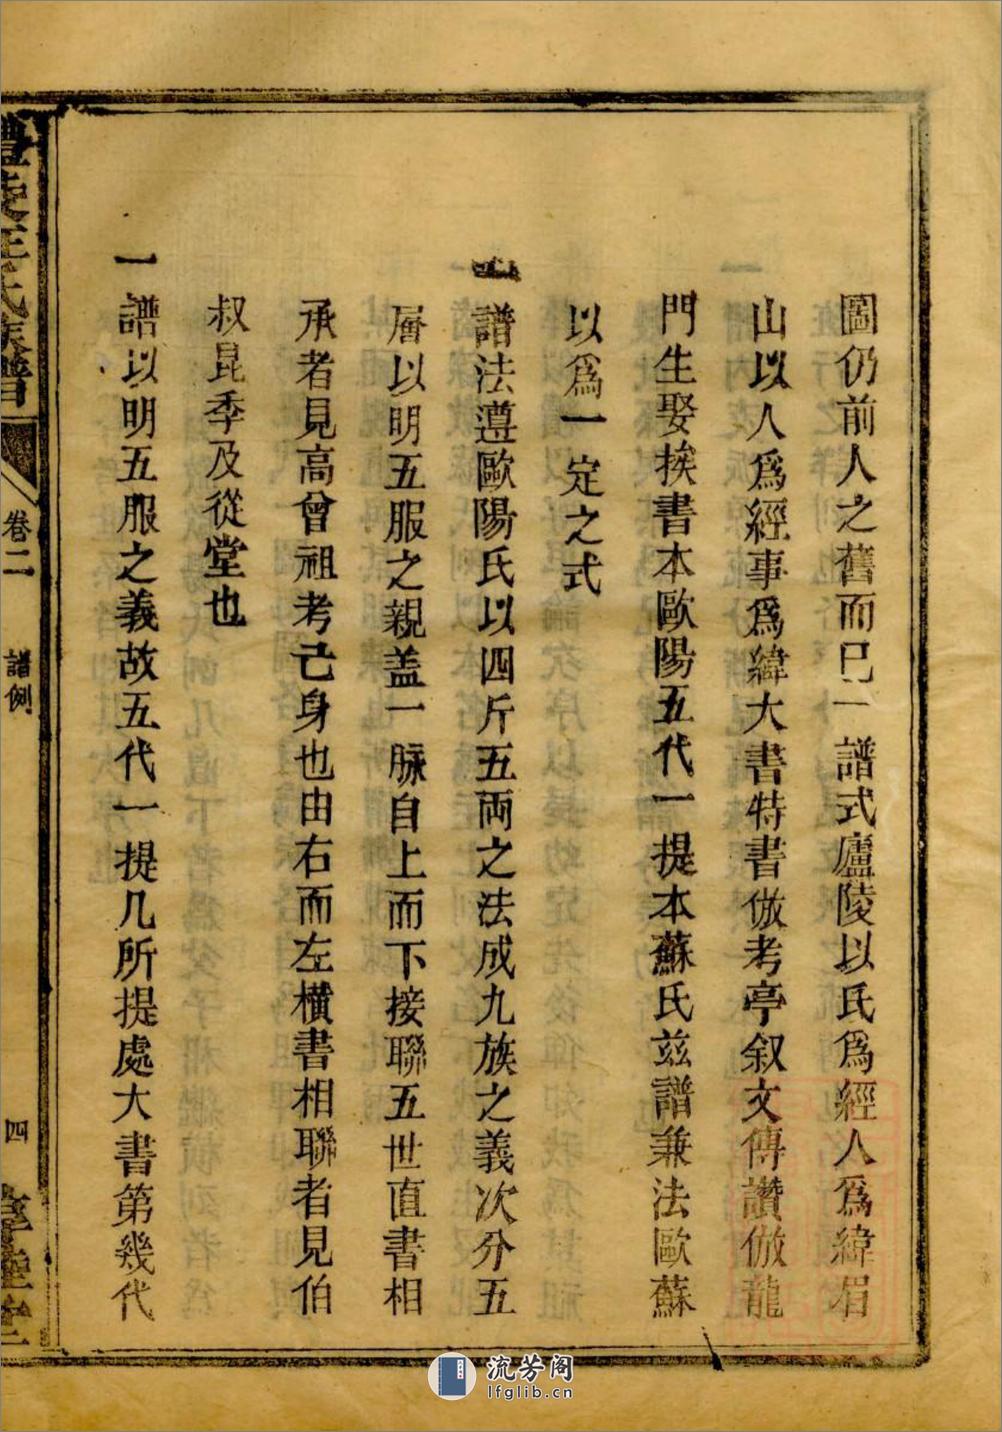 圖仍前人之舊而已一譜式廬陵以氏爲經人爲緯眉
山以人爲經事爲緯大書特書倣考亭叙文傳讚倣龍
門生娶挨書本歐陽五代一提本蘇氏兹譜兼法歐蘇
以爲一定之式
一譜法遵歐陽氏以四斤五兩之法成九族之義次分五
層以明五服之親盖一脉自上而下接聯五世直書相
承者見高曾祖考己身也由右而左橫書相聯者見伯
叔昆季及從堂也
一譜以明五服之義故五代一提凡所提處大書第幾代
醴陵王氏族譜
卷二
譜例
四
流芳阁
lfglib.cn